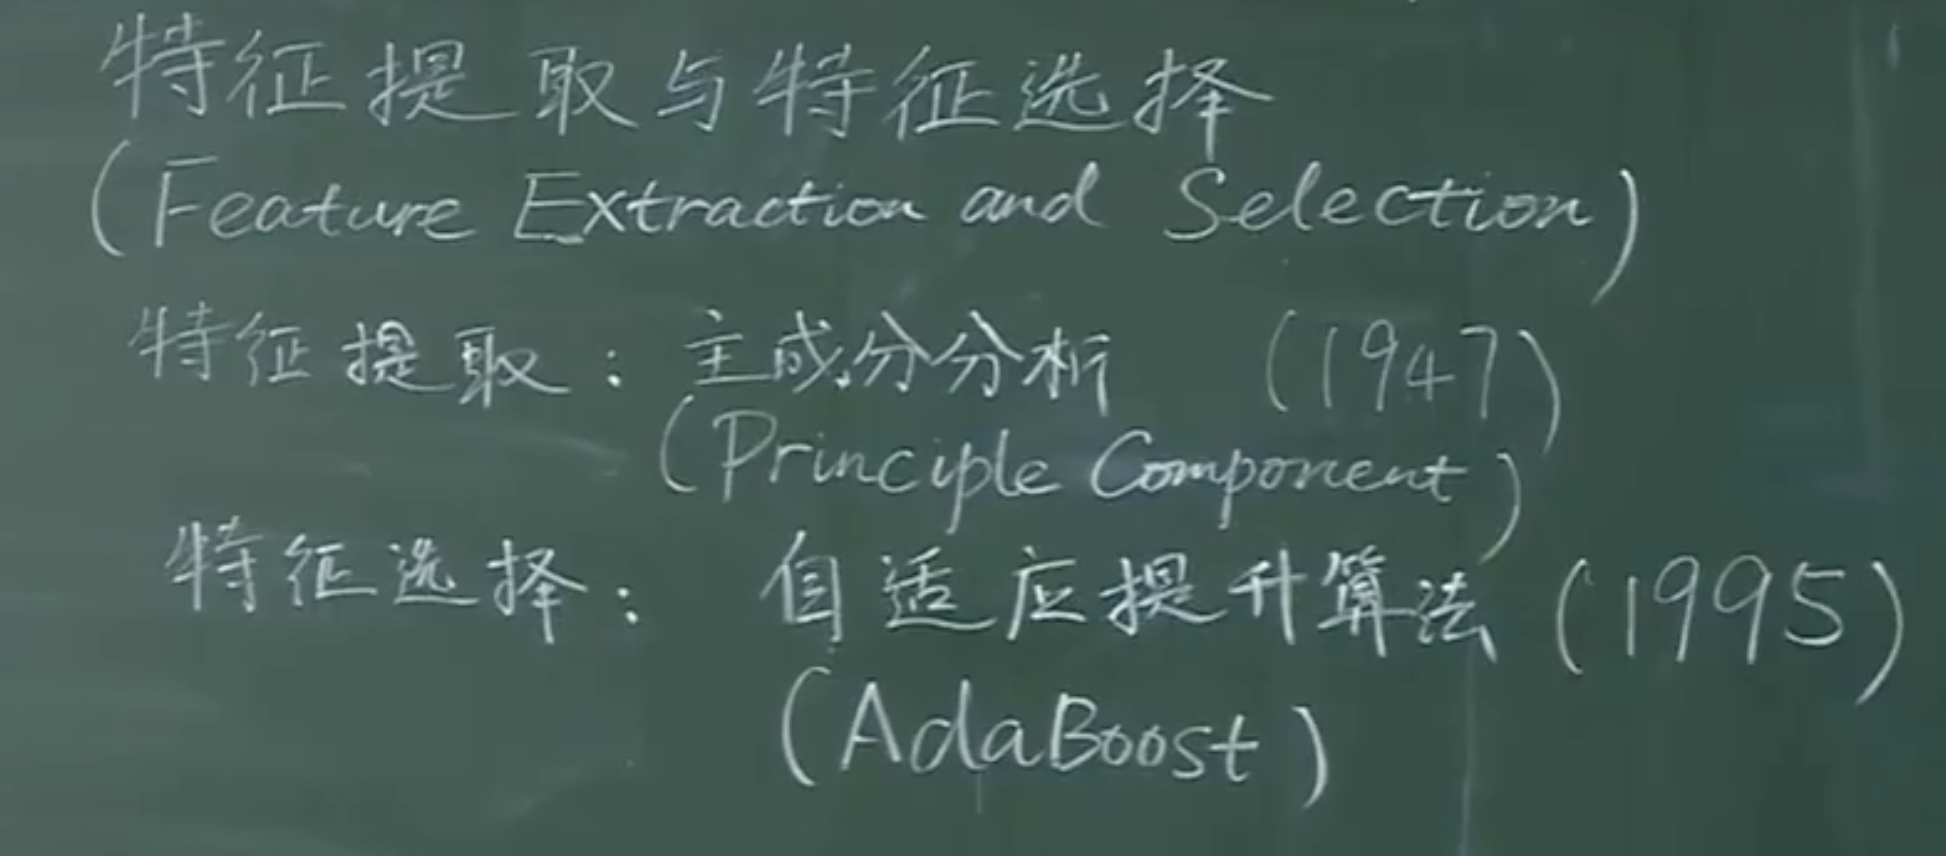 特征提取与特征选择
(Feature Extraction and Selection)
特征提取: 主成分分析 (1947)
(Principle Component)
特征选择: 自适应提升算法 (1995)
(AdaBoost)